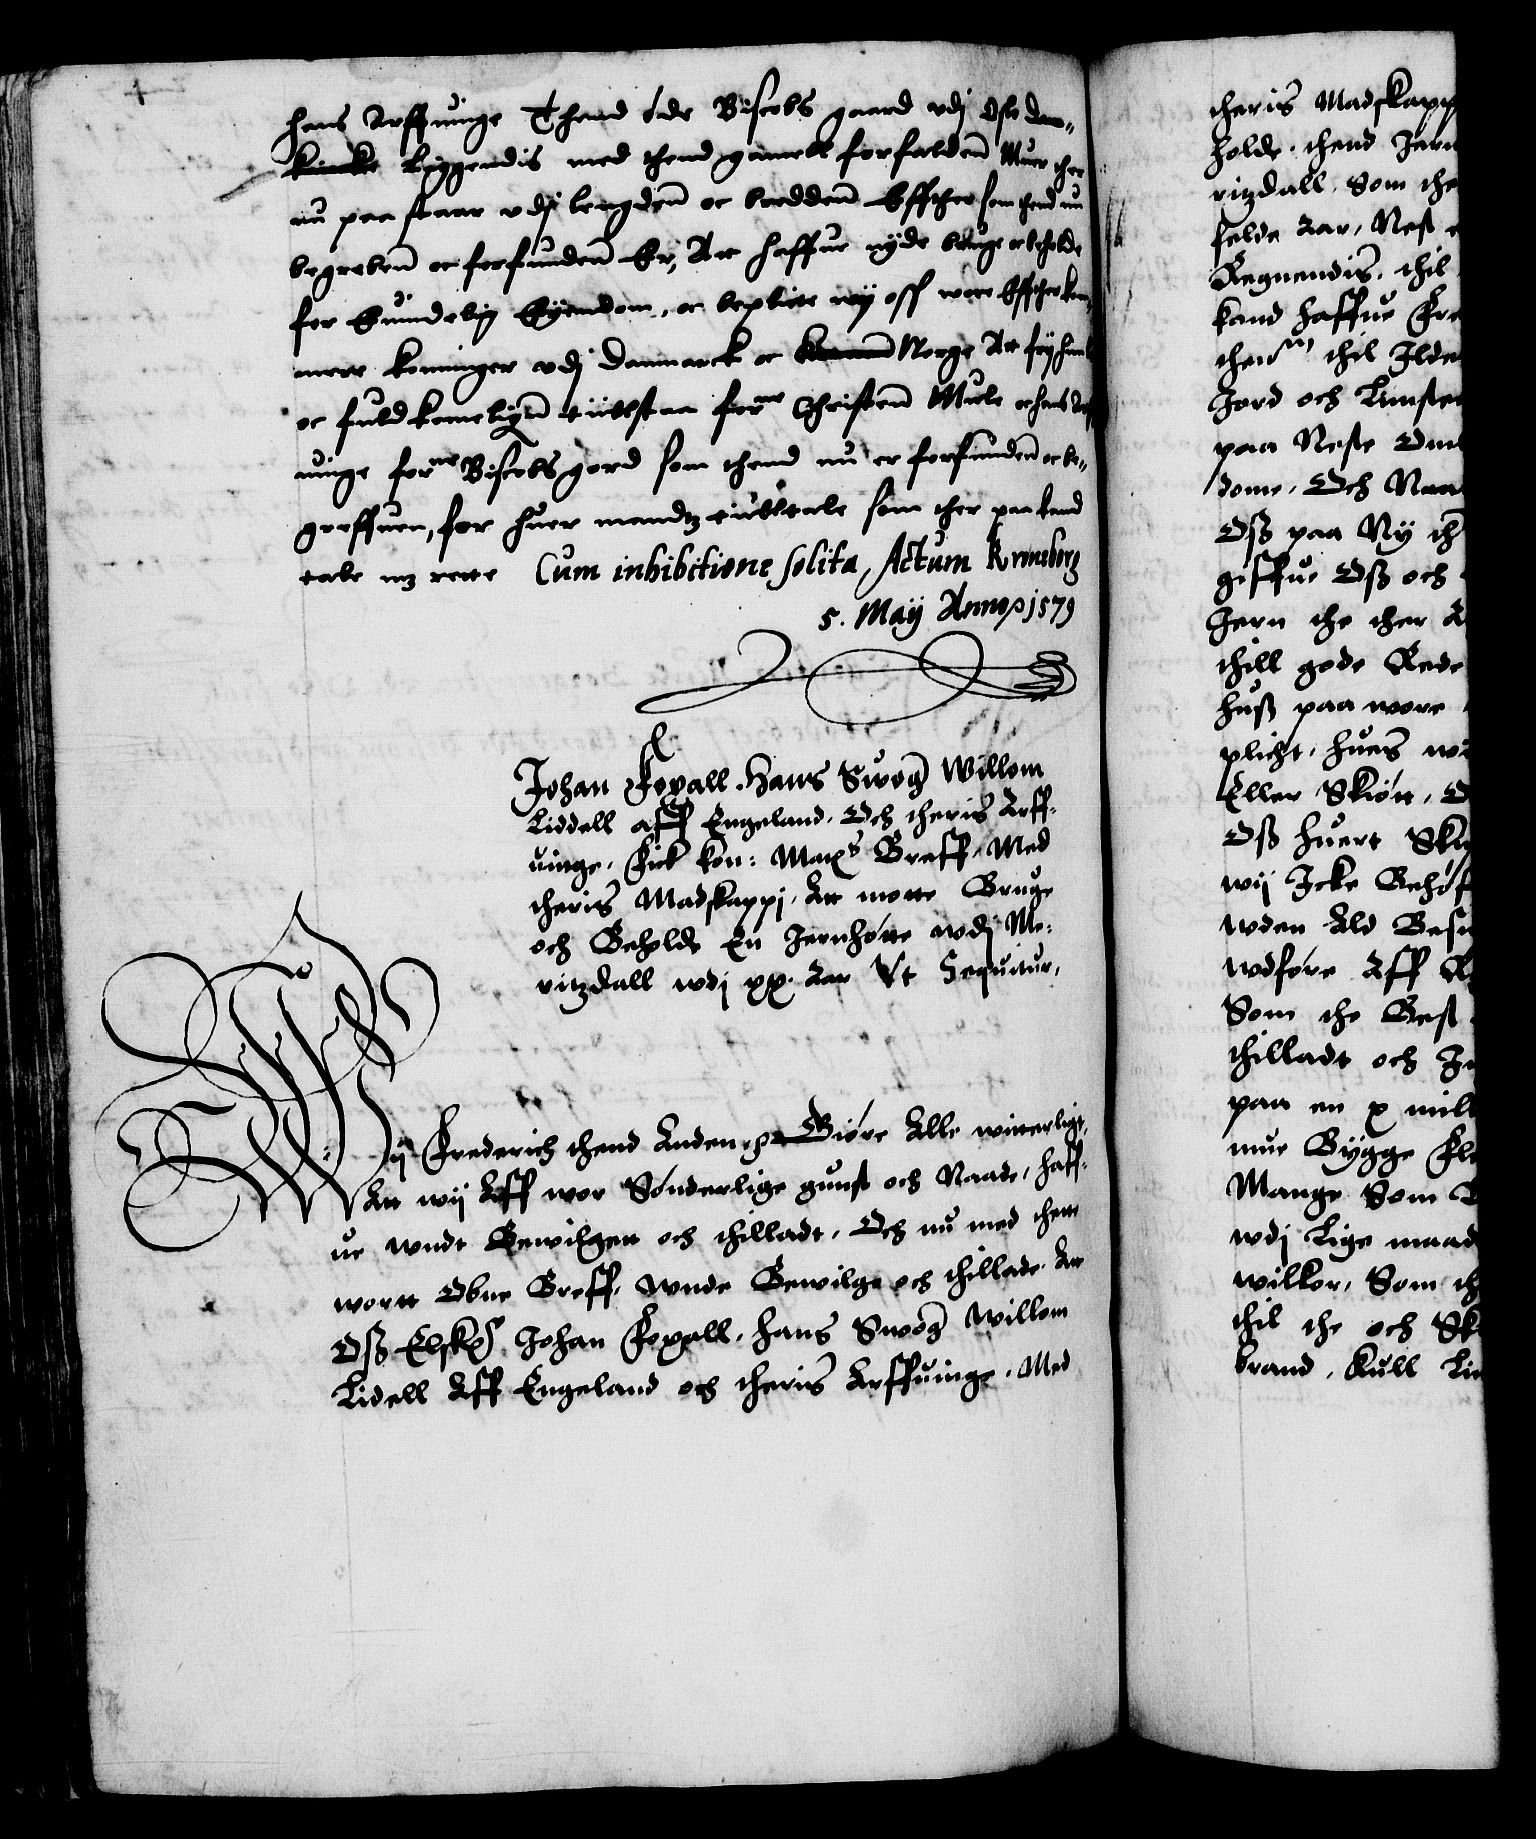 hans Arffuinge Thend øde Biscobs gaard vdj Oslo dom„
kiircke liggendis med thend gamell forfalden Muer ther
nu paa staar vdj lengden oc bredden Effther som thend nu
begreben oc forfunden Er, Att haffue nyde bruge oc beholde
for Euindelig Eyendom, oc beplicte wij oss wore Effther kom„
mere konninger vdj Danmarck oc Norge Att frj hiemle
oc fuldkomeligen tiilstaa forne Christen Mule oc hans Arf
uinge forne Biscobsgord som thend nu er forfunden oc be„
greffuen, for huer mandtz tiilltale som ther paa kand
tale mz rette Cum inhibitione solita, Actum Kroneborg
5. Maij Anno 1579
Johan Foxall. Hans Swog Willom
Liddell aff Engeland. Och theris Arff„
uinge. Fick kon: Matz Breff. Med
theris Madskappj. Att motte Bruge
och Beholde En Jernhøtte wdj Me„
ritzdall wdj xx. Aar Vt Sequitur.
Wij Frederich thend Anden p Giøre Alle witterligt,
Att wij Aff wor Sønderlige gunst och Naade, haff„
ue wndt Bewilgett och thilladt, Och nu med thette
wortt Obne Breff, wnde Bewilge och thillade. Att
Oß Elske Johan Foxall, hans Swog Willom
Lidell Aff Engeland och theris Arffuinge. Med
theris Madskapp
holde. thend Jern
ritzdall. Som the
felde Aar, Nest e
Regnendis. thil
kand haffue Fre
then thil Ilde
Jord och Limsten
paa Neste Om
dome. Och Naar
Oß paa Ny th
giffue Oß och
Jern the ther A
thill gode Rede
huß paa wore
plicht, huers wi
Eller Skiøn, O
Oß huert Ski
wij Icke Behøf
wden Ald Besu
wdføre Aff R
Som the Best
thilladt och In
paa en x mill
mue Bygge Fle
Mange Som O
wdj Lige maad
wilkor, Som th
thil the och Sk
brand, Kull Li